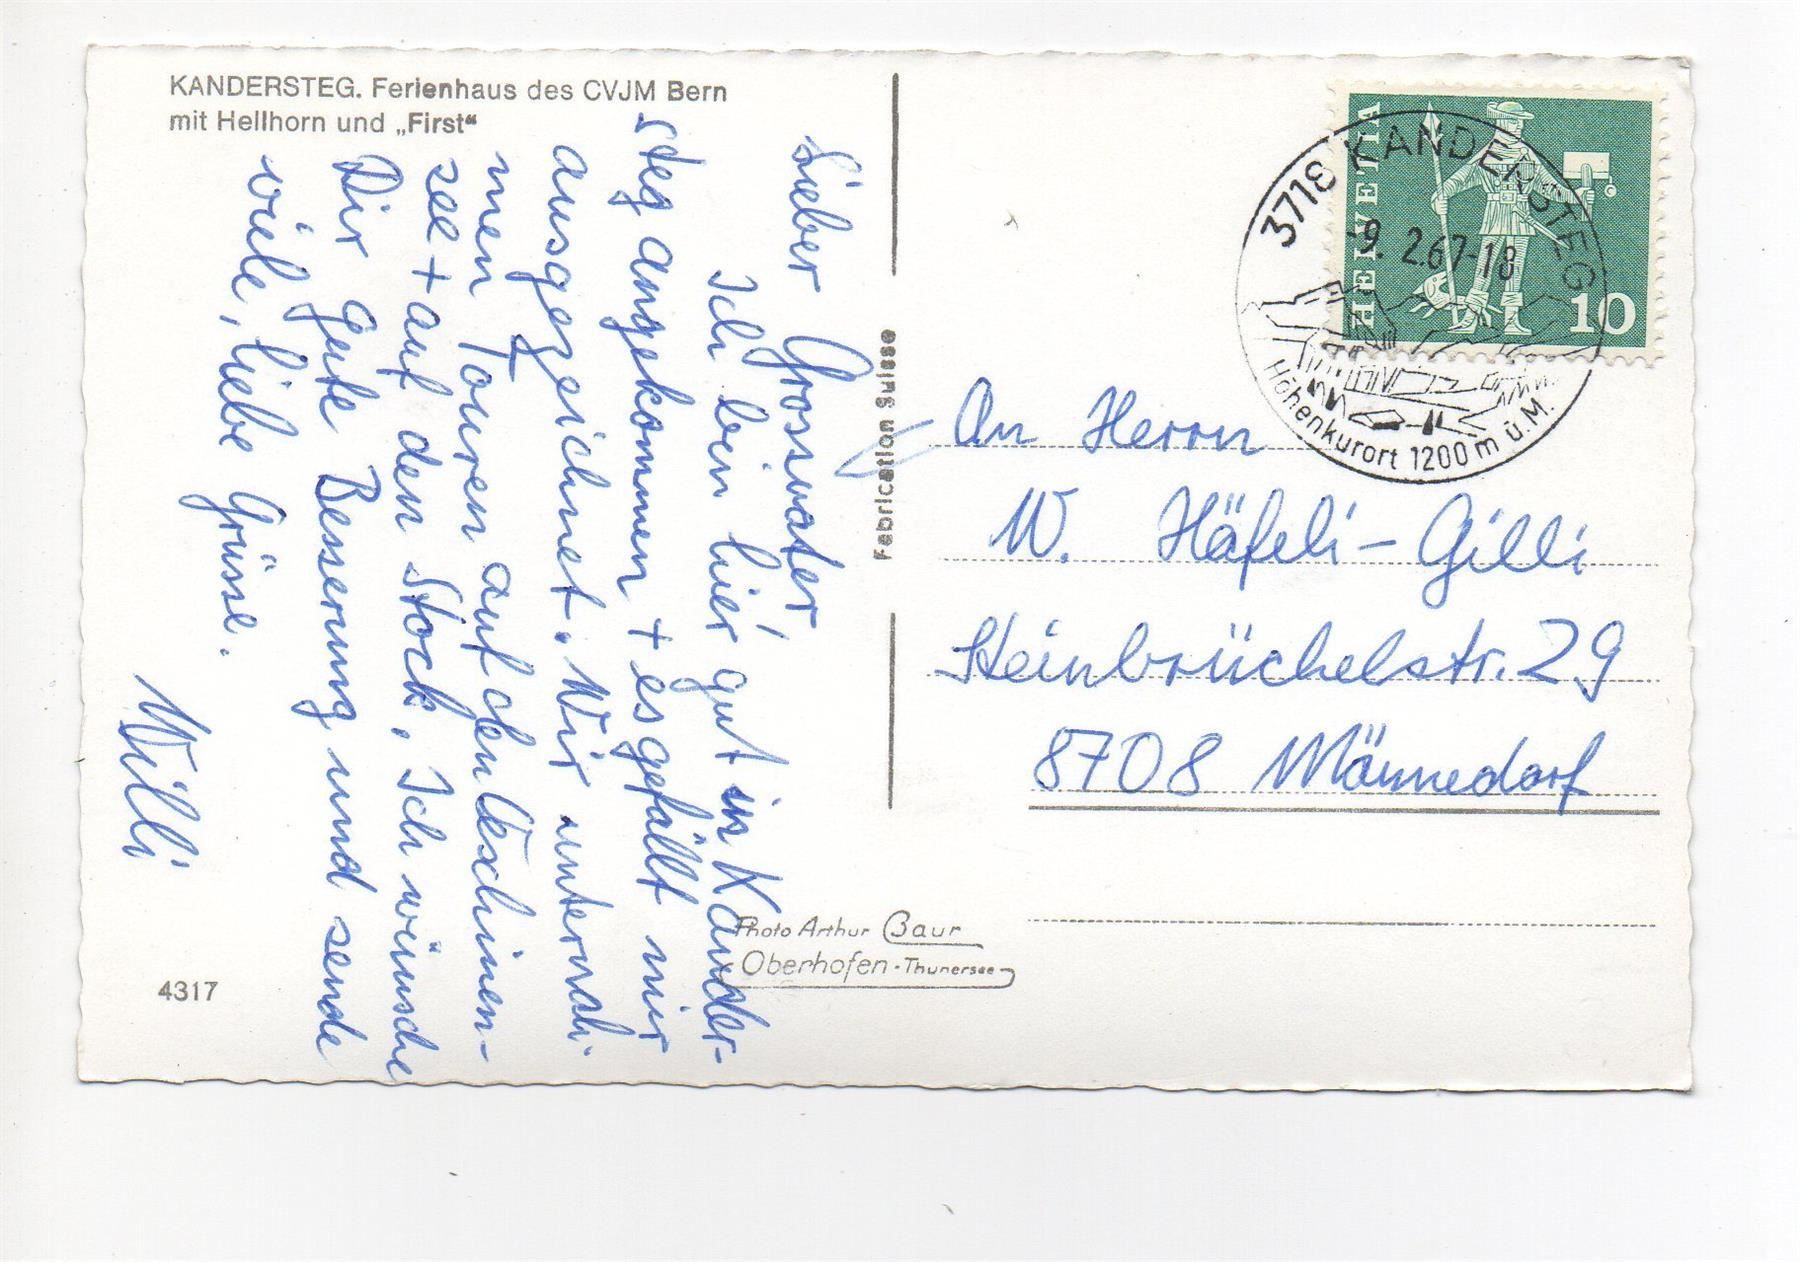 KANDERSTEG. Ferienhaus des CVJM Bern
mit Hellhorn und „First“
Lieber Grossvater,
Ich bin hier gut in Kander-
steg angekommen + es gefällt mir
ausgezeichnet. Wir unterneh-
men Touren auf den Oeschinen-
see + auf den Stock. Ich wünsche
Dir gute Besserung und sende
viele, liebe Grüsse.
Willi
4317
Fabrication Suisse
Photo Arthur Baur
Oberhofen - Thunersee
HELVETIA
10
3718 KANDERSTEG
-9. 2.67-18
Höhenkurort 1200 m ü. M.
An Herrn
W. Häfeli - Gilli
Steinbrüchelstr. 29
8708 Männedorf